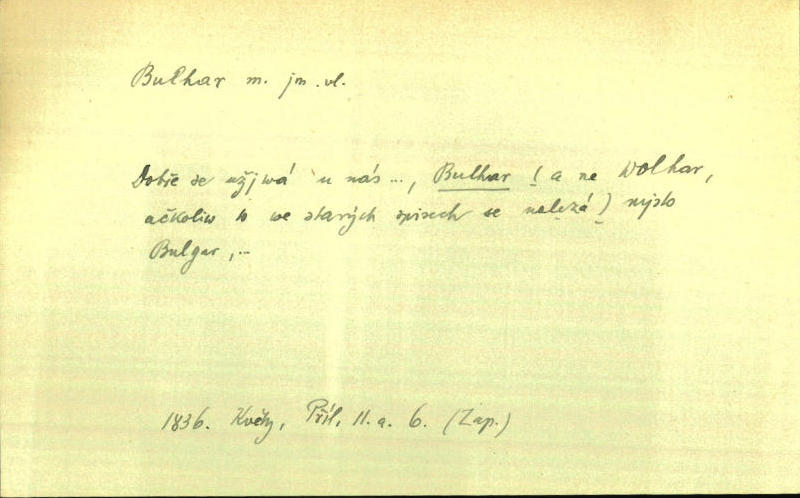 Bulhar m. jm. vl.
Dobře se užjwá u nás ..., Bulhar (a ne Wolhar,
ačkoliw to we starých spisech se nalezá) mjsto
Bulgar, ...
1836. Květy, Příl. 11. a. 6. (Zap.)